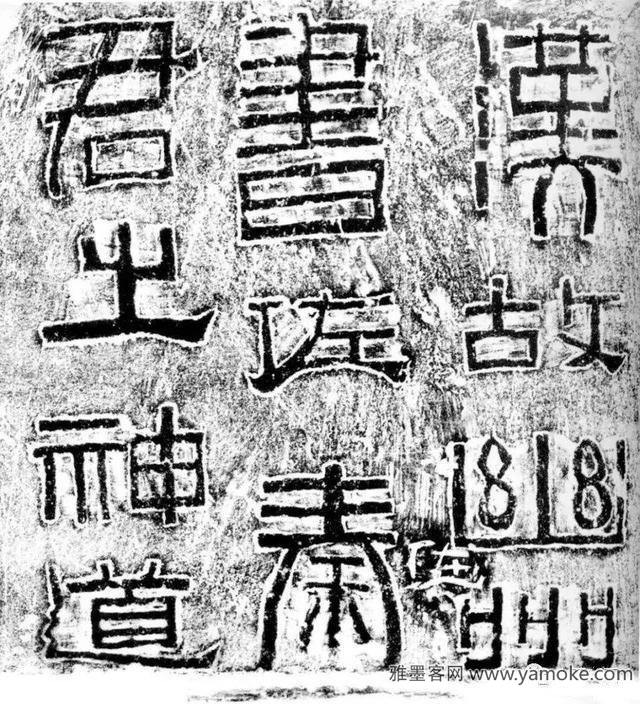 漢故幽州
書佐秦
君之神道
雅墨客网 www.yamoke.com